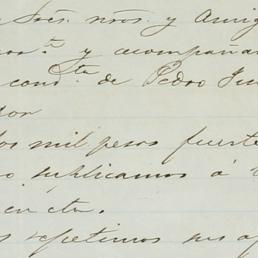 Sres. nros. y Amig
y acompañan
cta de Pedro Ju
por
dos mil pesos fuerte
suplicamos á
en cta.
repetimos sus af